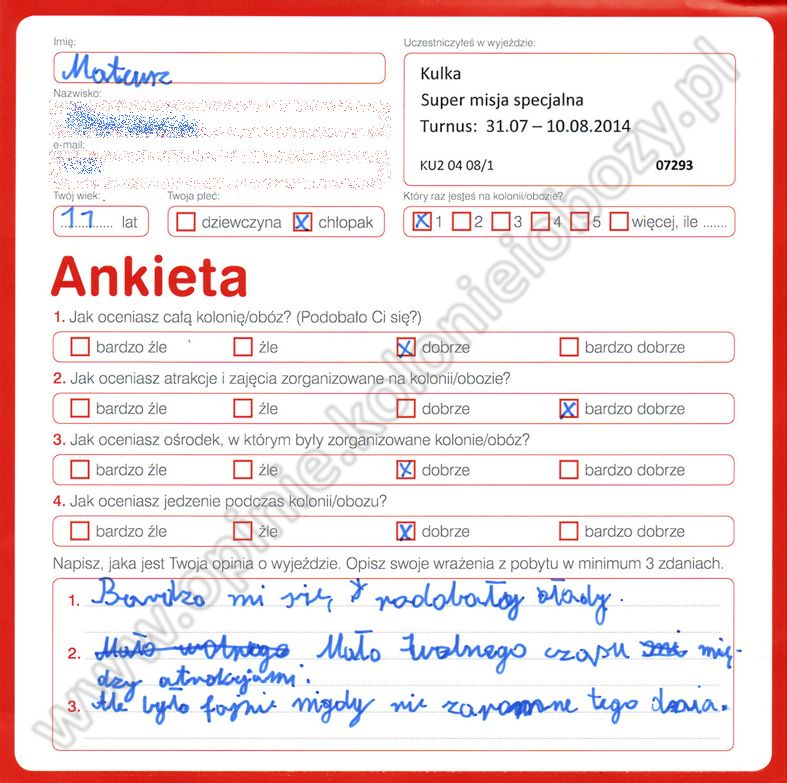 Imię:
Mateusz
Nazwisko:
e-mail:
Twój wiek:
11 lat
Twoja płeć:
dziewczyna x chłopak
Uczestniczyłeś w wyjeździe:
Kulka
Super misja specjalna
Turnus: 31.07 – 10.08.2014
KU2 04 08/1 07293
Który raz jesteś na kolonii/obozie?
x 1 2 3 4 5 więcej, ile .......
Ankieta
1. Jak oceniasz całą kolonię/obóz? (Podobało Ci się?)
bardzo źle źle x dobrze bardzo dobrze
2. Jak oceniasz atrakcje i zajęcia zorganizowane na kolonii/obozie?
bardzo źle źle dobrze x bardzo dobrze
3. Jak oceniasz ośrodek, w którym były zorganizowane kolonie/obóz?
bardzo źle źle x dobrze bardzo dobrze
4. Jak oceniasz jedzenie podczas kolonii/obozu?
bardzo źle źle x dobrze bardzo dobrze
Napisz, jaka jest Twoja opinia o wyjeździe. Opisz swoje wrażenia z pobytu w minimum 3 zdaniach.
1. Bardzo mi się podobały
2. Mało wolnego Mało wolnego czasu mię-
dzy atrakcjami.
3. Ale było fajnie nigdy nie tego dnia.
www.opinie.kolonieiobozy.pl